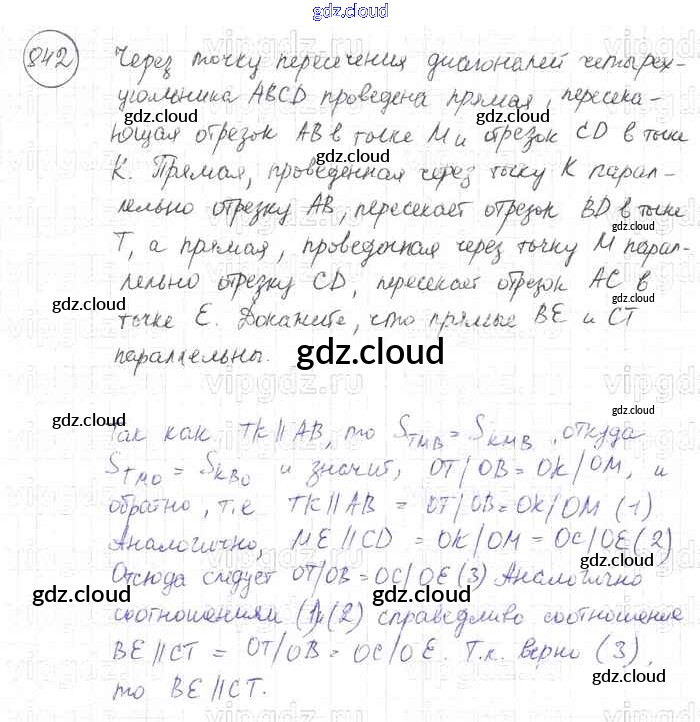 gdz.cloud
842 Через точку пересечения диагоналей четырех-
угольника ABCD проведена прямая, пересека-
ющая отрезок AB в точке M и отрезок CD в точке
K. Прямая, проведенная через точку K парал-
лельно отрезку AB, пересекает отрезок BD в точке
T, а прямая, проведенная через точку M парал-
лельно отрезку CD, пересекает отрезок AC в
точке E. Докажите, что прямые BE и CT
параллельны.
gdz.cloud
Так как TK || AB, то S_TMB = S_KMB, откуда
S_TMO = S_KBO и значит, OT/OB = OK/OM, и
обратно, т.е TK || AB = OT/OB = OK/OM (1)
Аналогично, ME || CD = OK/OM = OC/OE (2)
Отсюда следует OT/OB = OC/OE (3) Аналогично
соотношениями (1)и(2) справедливо соотношение
BE || CT = OT/OB = OC/OE. Т.к. верно (3),
то BE || CT.